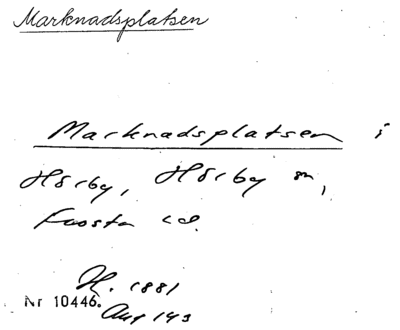 Marknadsplatsen
Marknadsplatsen i
Hörby, Hörby sn,
Frosta hd.
H. 1881
Nr 10446.
Aug 143